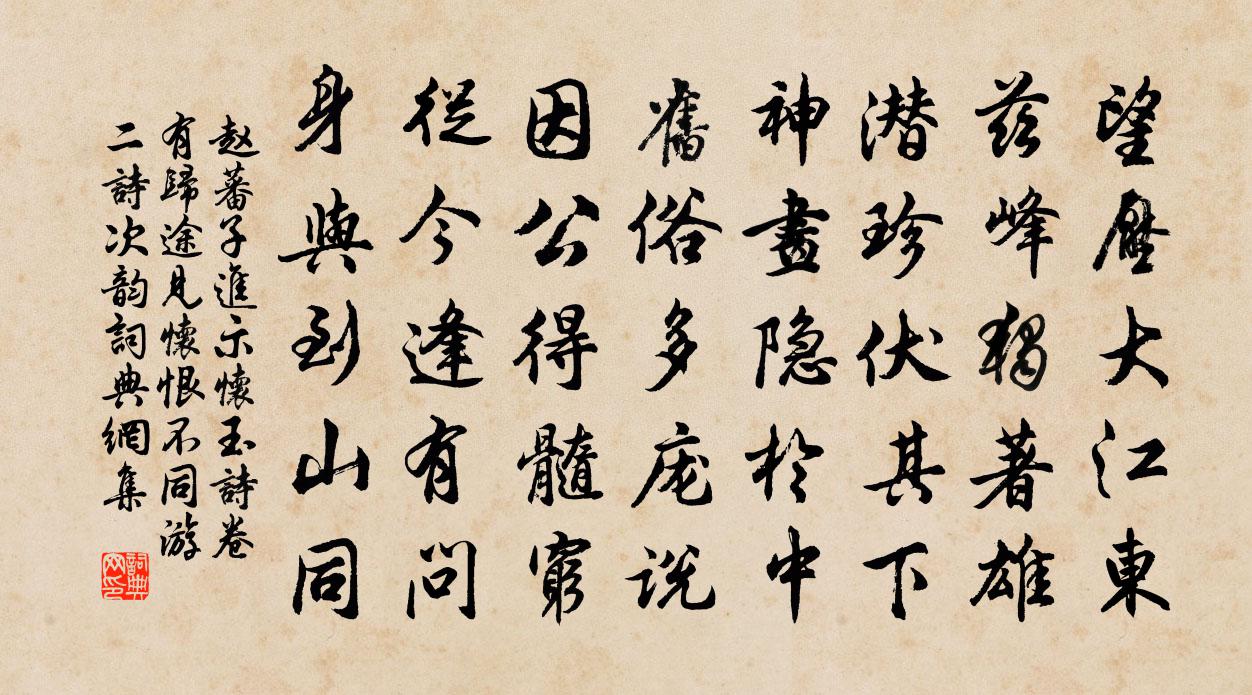 望壓大江東
茲峰獨著雄
潜珍伏其下
神畫隐於中
舊俗多庞说
因公得髓窮
從今逢有问
身與到山同
赵蕃子進示懷玉詩卷
有歸途見懷恨不同游
二詩次韵詞典網集
詞典网印